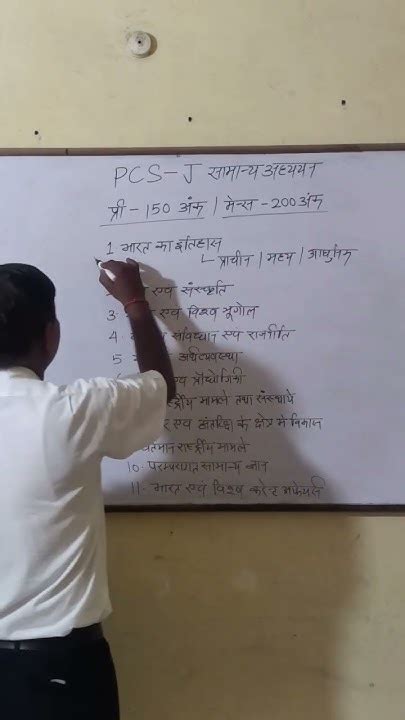 PCS-J सामान्य अध्ययन
प्री - 150 अंक / मेन्स - 200 अंक
1 भारत का इतिहास
प्राचीन / मध्य / आधुनिक
एवं संस्कृति
3 एवं विश्व भूगोल
4. संविधान एवं राजनीति
5 अर्थव्यवस्था
प्रौद्योगिकी
मामले तथा संस्थाये
एवं अंतरिक्ष के क्षेत्र मे विकास
राष्ट्रीय मामले
10. परम्परागत सामान्य ज्ञान
11. भारत एवं विश्व करेन्ट अफेयर्स